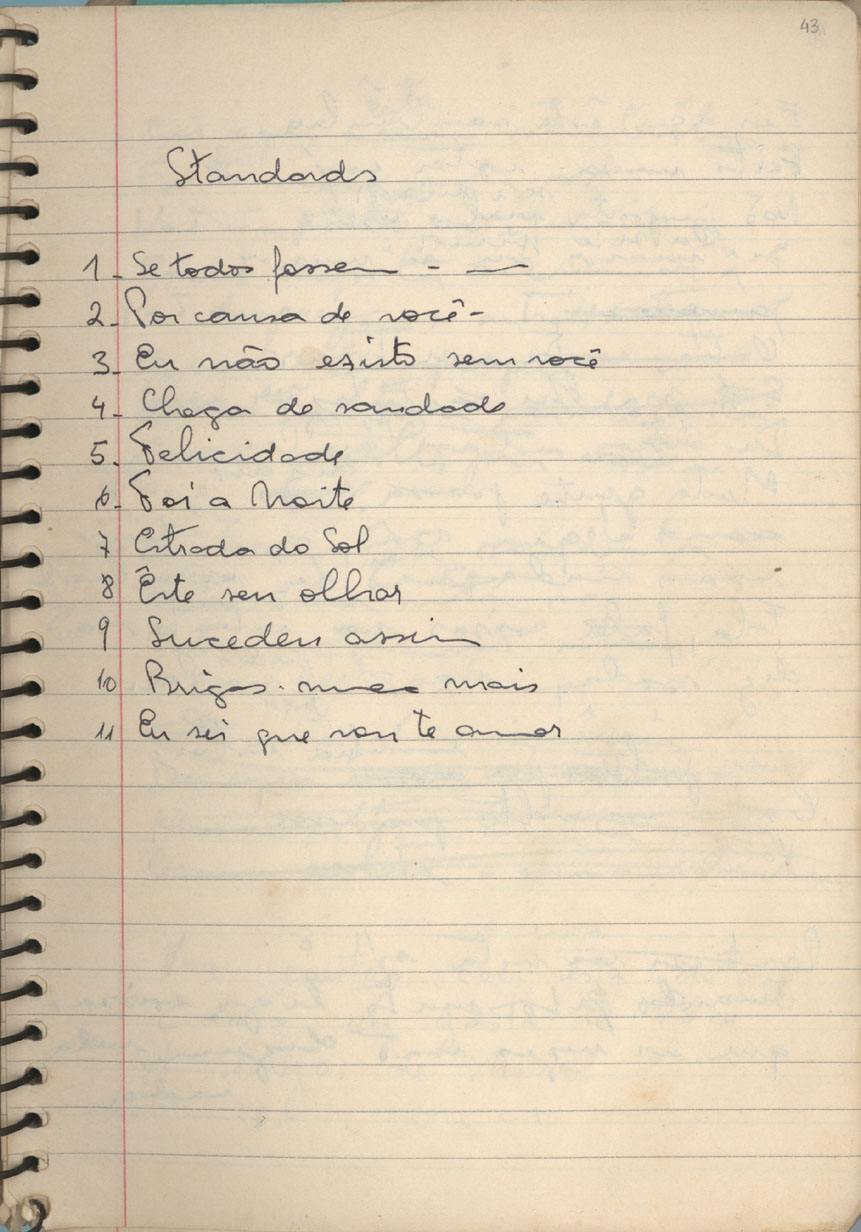 43
Standards
1- Se todos fossem - —
2- Por causa de você -
3- Eu não existo sem você
4- Chega de saudade
5- Felicidade
6- Foi a Noite
7 Estrada do Sol
8 Êste seu olhar
9 Sucedeu assim
10 Brigas. nunca mais
11 Eu sei que vou te amar